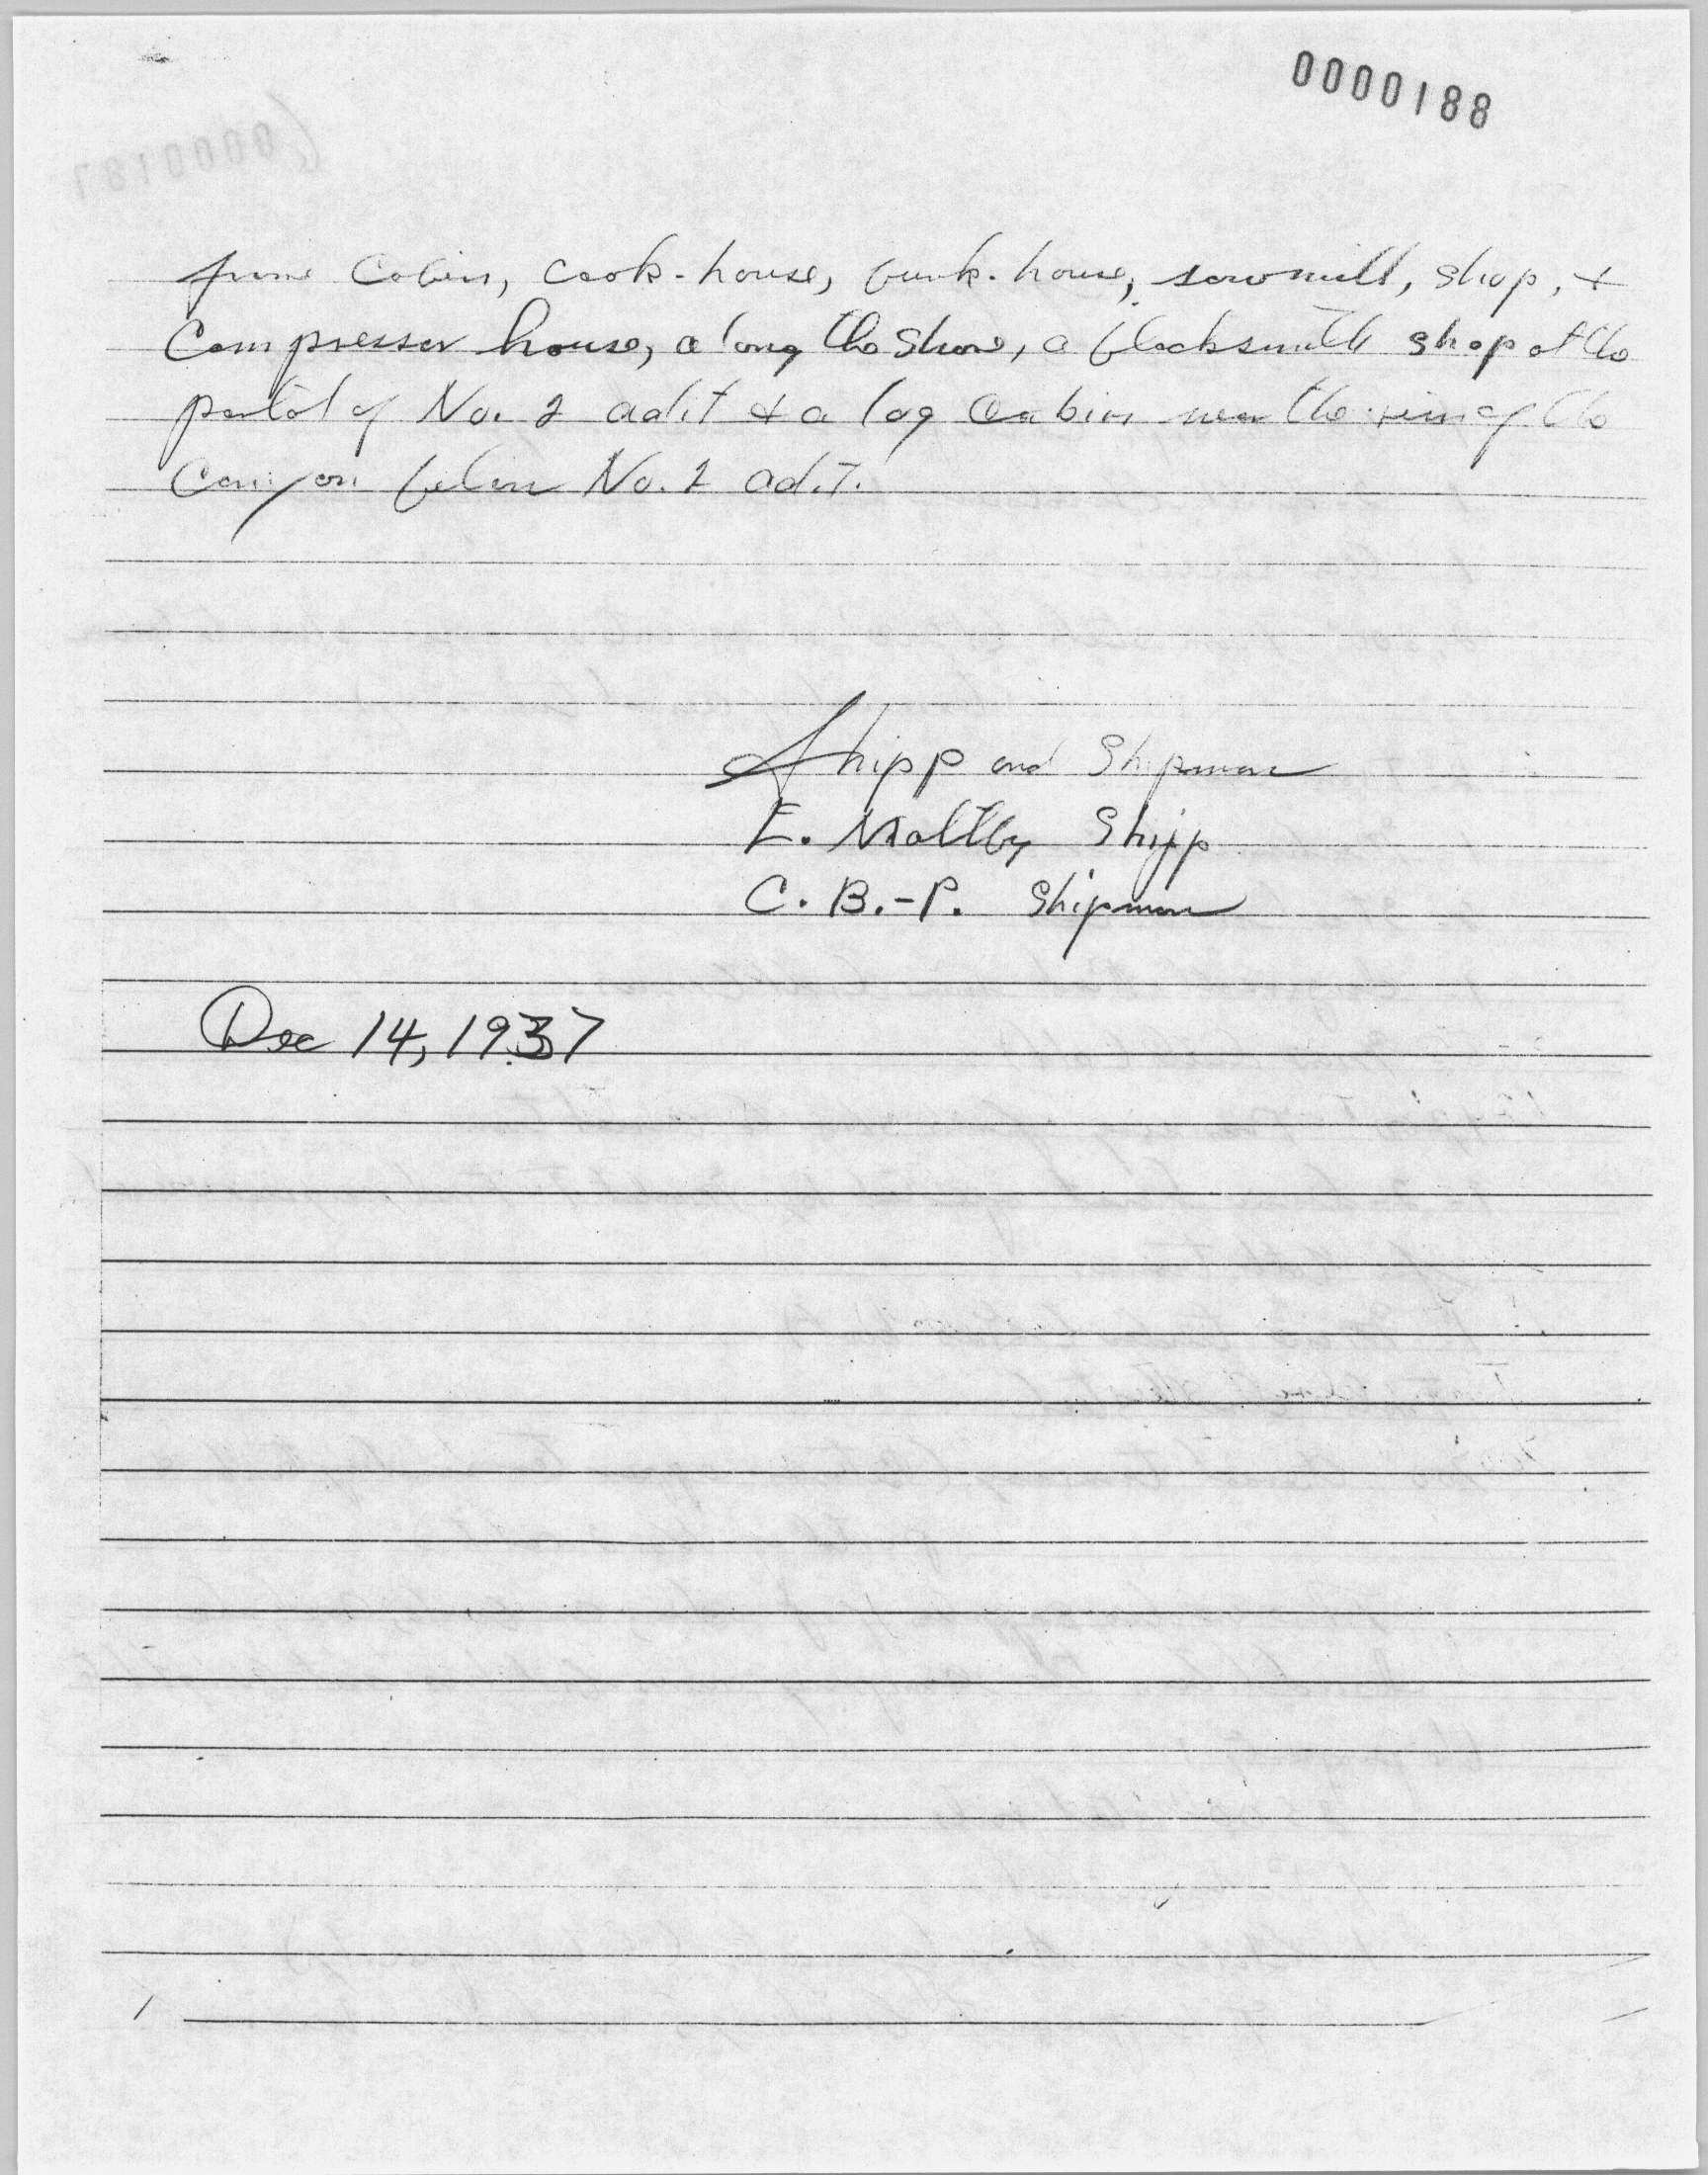 0000188
frame Cabin, cook-house, bunk-house, sawmill, shop, +
Compressor house, along the shore, a blacksmith shop at the
portal of No. 2 adit + a log cabin near the rim of the
Canyon below No. 2 adit.
Shipp and Shipman
E. Maltby Shipp
C. B.-P. Shipman
Dec 14, 1937